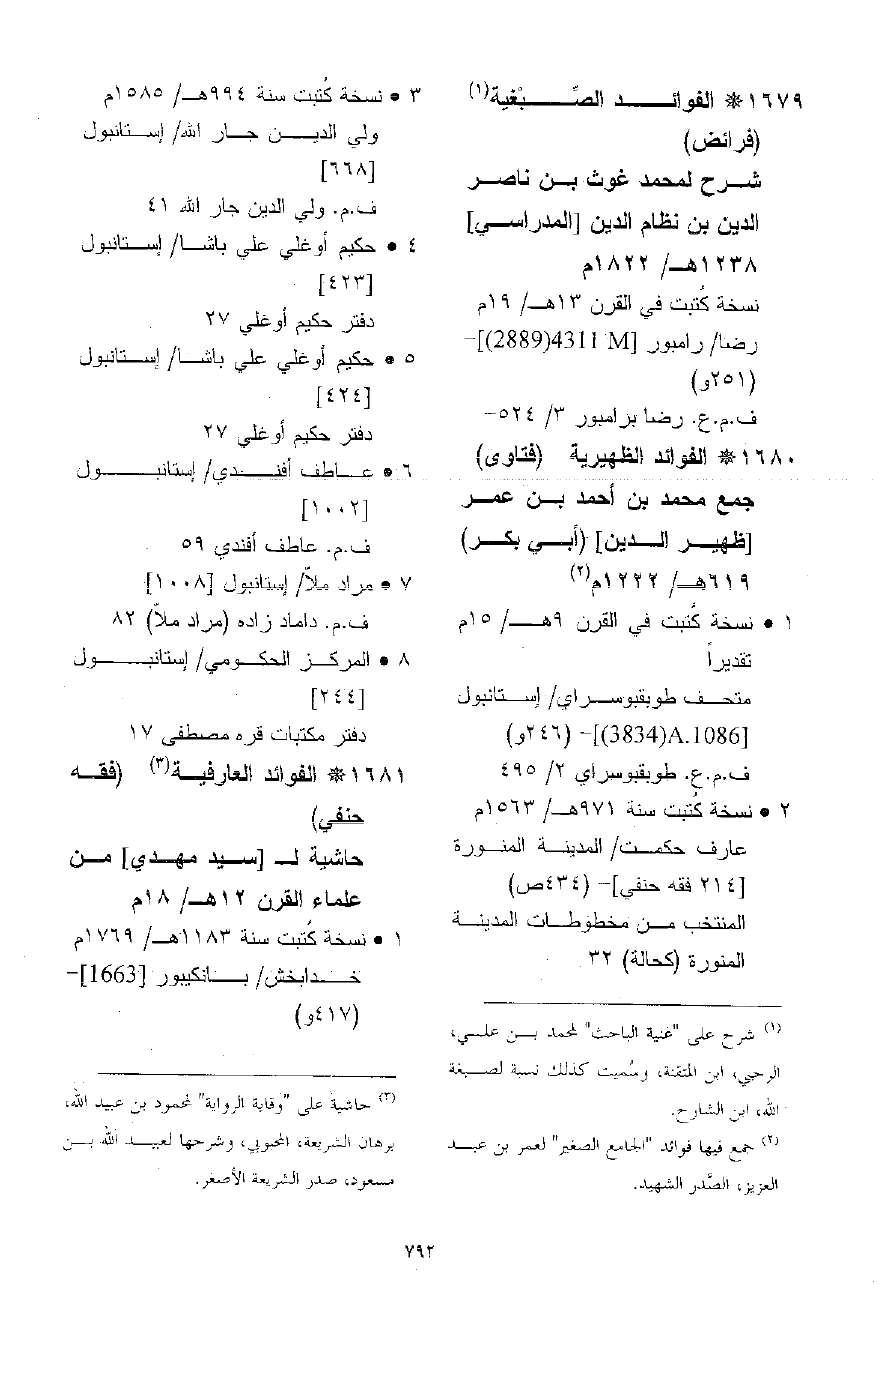 ١٦٧٩ * الفوائد الصِّبْغية(١)
(فرائض)
شرح لمحمد غوث بن ناصر
الدين بن نظام الدين [المدراسي]
١٢٣٨هـ/ ١٨٢٢م
نسخة كُتبت في القرن ١٣هـ/ ١٩م
رضا/ رامبور [4311 M(2889)]-
(٢٥١و)
ف.م.ع. رضا برامبور ٣/ ٥٢٤-
١٦٨٠ * الفوائد الظهيرية (فتاوى)
جمع محمد بن أحمد بن عمر
[ظهير الدين] (أبي بكر)
٦١٩هـ/ ١٢٢٢م(٢)
١ • نسخة كُتبت في القرن ٩هـ/ ١٥م
تقديراً
متحف طوبقبوسراي/ إستانبول
[A.1086(3834)]- (٢٤٦و)
ف.م.ع. طوبقبوسراي ٢/ ٤٩٥
٢ • نسخة كُتبت سنة ٩٧١هـ/ ١٥٦٣م
عارف حكمت/ المدينة المنورة
[٢١٤ فقه حنفي]- (٤٣٤ص)
المنتخب من مخطوطات المدينة
المنورة (كحالة) ٣٢
(١) شرح على "غنية الباحث" لمحمد بن علي،
الرحبي، ابن المتقنة، وسُميت كذلك نسبة لصبغة
الله، ابن الشارح.
(٢) جمع فيها فوائد "الجامع الصغير" لعمر بن عبد
العزيز، الصَّدر الشهيد.
٣ • نسخة كُتبت سنة ٩٩٤هـ/ ١٥٨٥م
ولي الدين جار الله/ إستانبول
[٦٦٨]
ف.م. ولي الدين جار الله ٤١
٤ • حكيم أوغلي علي باشا/ إستانبول
[٤٢٣]
دفتر حكيم أوغلي ٢٧
٥ • حكيم أوغلي علي باشا/ إستانبول
[٤٢٤]
دفتر حكيم أوغلي ٢٧
٦ • عاطف أفندي/ إستانبول
[١٠٠٢]
ف.م. عاطف أفندي ٥٩
٧ • مراد ملاّ/ إستانبول [١٠٠٨]
ف.م. داماد زاده (مراد ملاّ) ٨٢
٨ • المركز الحكومي/ إستانبول
[٢٤٤]
دفتر مكتبات قره مصطفى ١٧
١٦٨١ * الفوائد العارفية(٣) (فقه
حنفي)
حاشية لـ [سيد مهدي] من
علماء القرن ١٢هـ/ ١٨م
١ • نسخة كُتبت سنة ١١٨٣هـ/ ١٧٦٩م
خدابخش/ بانكيبور [1663]-
(٤١٧و)
(٣) حاشية على "وقاية الرواية" لمحمود بن عبيد الله،
برهان الشريعة، المحبوبي، وشرحها لعبيد الله بن
مسعود، صدر الشريعة الأصغر.
٧٩٢